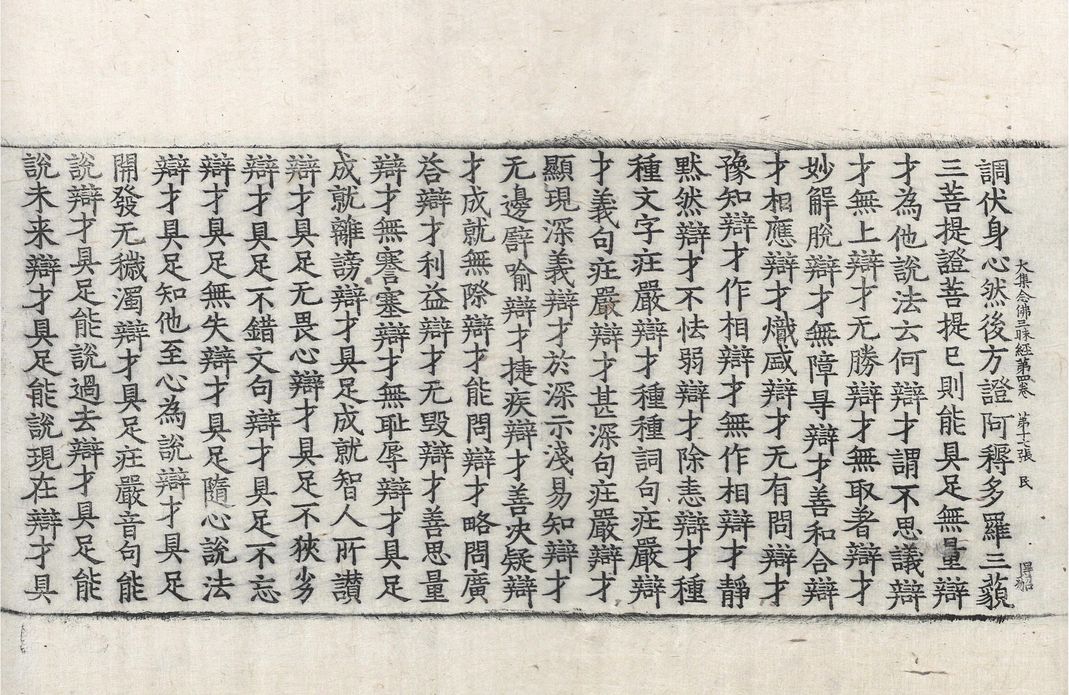 大集念佛三昧経第四卷 第十張 民
調伏身心然後方證阿耨多羅三藐
三菩提證菩提已則能具足無量辯
才為他說法云何辯才謂不思議辯
才無上辯才无勝辯才無取著辯才
妙解脫辯才無障㝵辯才善和合辯
才相應辯才熾盛辯才无有問辯才
豫知辯才作相辯才無作相辯才靜
默然辯才不怯弱辯才除恚辯才種
種文字庄嚴辯才種種詞句庄嚴辯
才義句庄嚴辯才甚深句庄嚴辯才
顯現深義辯才於深示淺易知辯才
无邊譬喻辯才捷疾辯才善决疑辯
才成就無際辯才能問辯才略問廣
荅辯才利益辯才无毀辯才善思量
辯才無謇塞辯才無恥辱辯才具足
成就離謗辯才具足成就智人所讃
辯才具足无畏心辯才具足不狹劣
辯才具足不錯文句辯才具足不忘
辯才具足無失辯才具足隨心說法
辯才具足知他至心為說辯才具足
開發无穢濁辯才具足庄嚴音句能
說辯才具足能說過去辯才具足能
說未来辯才具足能說現在辯才具